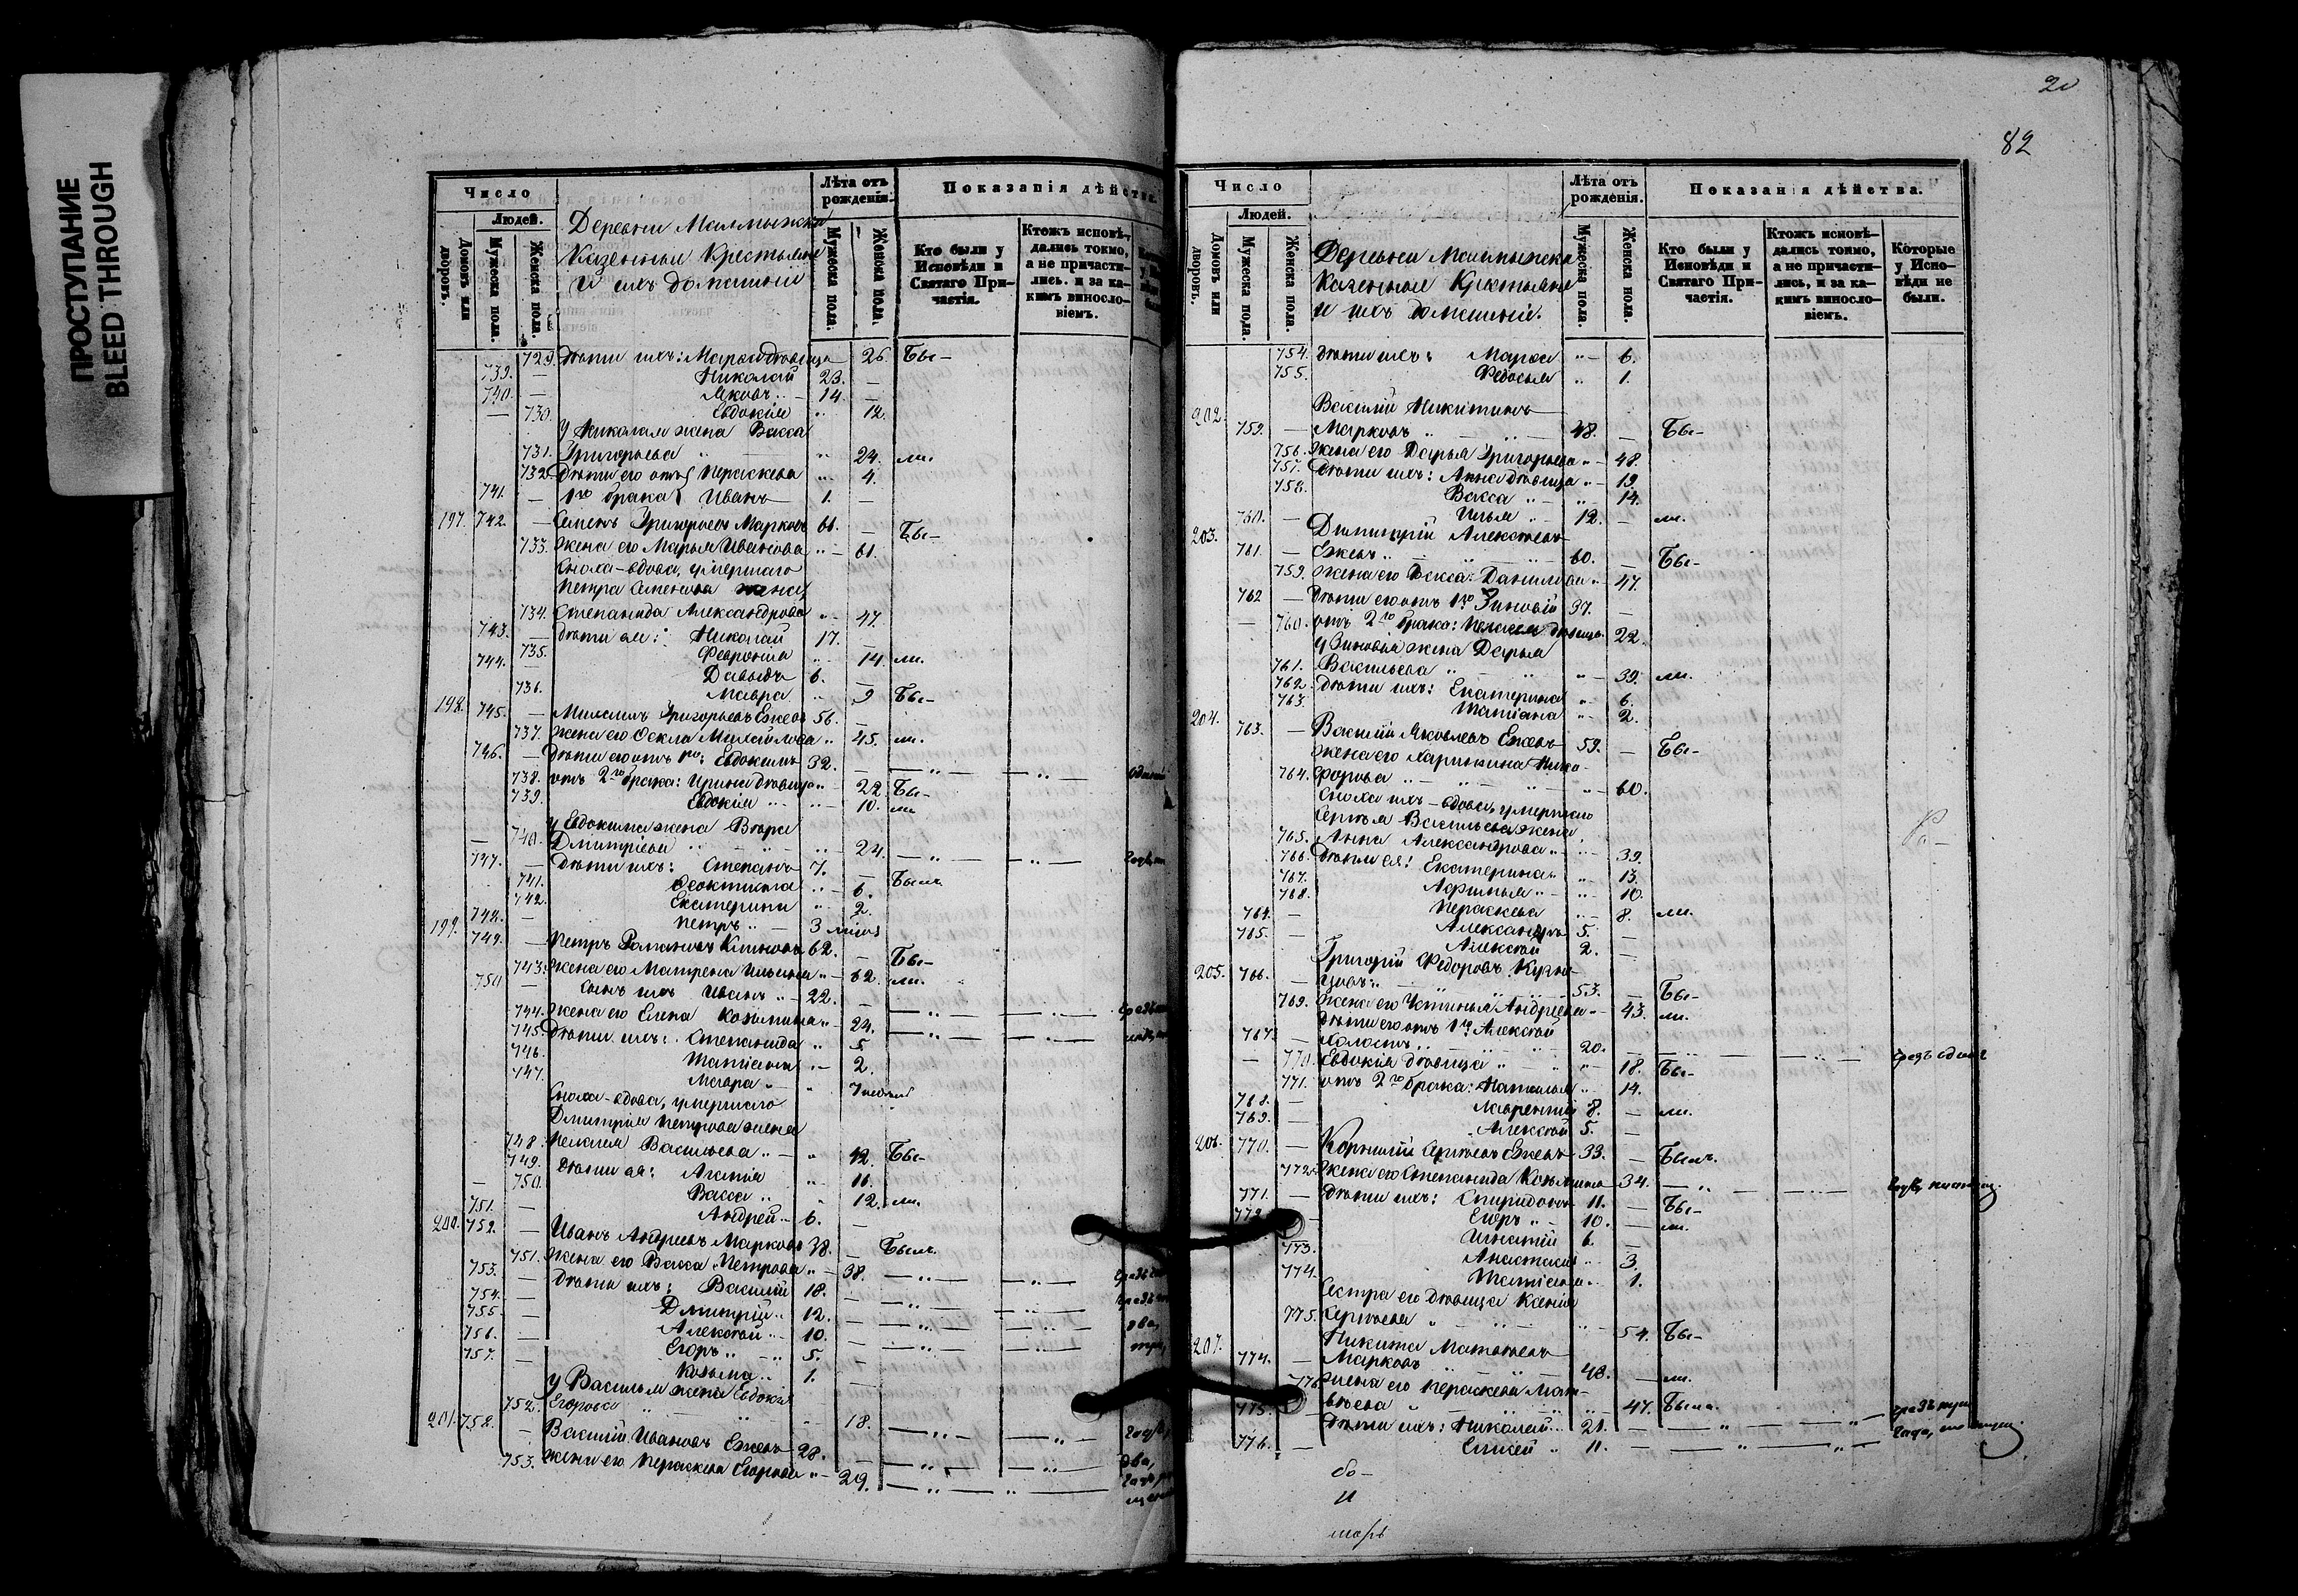 ПРОСТУПАНИЕ
BLEED THROUGH
Число
Лѣта отъ рожденія.
Показанія дѣйств
Людей.
Домовъ или дворовъ.
Мужеска пола.
Женска пола.
Деревни Малмыжка
Казенные Крестьяне
и ихъ домашніи
Мужеска пола.
Женска пола.
Кто были у Исповѣди и Святаго Причастія.
Ктожъ исповѣдались токмо, а не причастились. и за какимъ винословіемъ.
729. Дѣти ихъ: Марья дѣвица 26 Бы-
739. — Николай 23. —
740. — Яковъ 14. —
— 730. Евдокія " 12.
у Николая жена Васса
731. Григорьева " 24. ли.
732. Дѣти его отъ Параскева " 4.
741. — 1го брака Иванъ 1. —
197. 742. — Семенъ Григорьевъ Марковъ 61. — Бы-
733. Жена его Марья Иванова " 61.
Сноха-вдова, умершаго
Петра Семенова жена,
734. Степанида Александрова " 47.
743. — Дѣти ея: Николай 17. —
735. Февронія " 14 ли.
744. — Давыдъ 6. —
736. Мавра " 9 Бы-
198. 745. — Григорьевъ Ежевъ 56. —
737. Жена его Фекла Михайлова " 45. ли.
746. — Дѣти его отъ 1го: Евдокимъ 32.
738. отъ 2го брака: Ирина дѣвица " 22 Бы-
739. Евдокія " 10. ли
у Евдокима жена Вѣра
— 740. Дмитріева " 24.
747. — Дѣти ихъ: Степанъ 7. — Былъ
741. Феоктиста " 6.
742. Екатерина " 2.
748. — Петръ 3
199. 749. — Петръ Романовъ 62. — Бы-
743. Жена его Матрена " 62. ли.
750 — Сынъ ихъ Иванъ 22. —
744. Жена его Елена Козьмина " 24.
745. Дѣти ихъ: Степанида " 5
746. Татіана " 2.
747. Мавра " 7 недѣль
Сноха-вдова, умершаго
Дмитрія Петрова жена
748. Пелагея Васильева " 42. Бы-
749. Дѣти ея: " 16.
— 750. Васса " 12. ли.
751. — Андрей 6. —
200. 752. — Иванъ Андреевъ Марковъ 38. — Былъ
751. Жена его Васса Петрова " 38.
753. — Дѣти ихъ: Василій 18. —
754. — Дмитрій 12. —
755. — Алексѣй 10. —
756. — Егоръ 5. —
757. — Козьма 1. —
у Василья жена Евдокія
752. Егорова " 18.
201. 758. — Василій Ивановъ Ежевъ 28. —
753. Жена его Параскева Егорова " 29.
20
82
Число
Лѣта отъ рожденія.
Показанія дѣйства.
Людей.
Домовъ или дворовъ.
Мужеска пола
Женска пола.
Деревни Малмыжка
Казенные Крестьяне
и ихъ домашніи.
Мужеска пола.
Женска пола.
Кто были у Исповѣди и Святаго Причастія.
Ктожъ исповѣдались токмо, а не причастились, и за какимъ винословіемъ.
Которые у Исповѣди не были.
754. Дѣти ихъ: Марѳа " 6.
755. Федосья " 1.
202. Василій Никитинъ
759. — Марковъ 48. — Бы-
756. Жена его Дарья Григорьева " 48.
757. Дѣти ихъ: Анна дѣвица " 19.
758. Васса " 14.
760. — Илья 12. — ли.
203. Димитрій Алексѣевъ
761. — Ежевъ 60. — Бы-
759. Жена его Васса Данилова " 47.
762 — Дѣти его отъ 1го Зиновій 37. —
— 760. отъ 2го брака: Пелагея дѣвица 22.
у Зиновья жена Дарья
761. Васильева " 39. ли.
762. Дѣти ихъ: Екатерина " 6.
763. Татіана " 2.
204. 763. — Василій Яковлевъ Ежевъ 59. — Бы-
жена его Ники-
764. форова " 60.
Сноха ихъ-вдова, умершаго
Сергѣя Васильева жена
765. Анна Александрова " 39.
766. Дѣти ея: Екатерина " 13.
767. Афимья " 10.
768. Параскева " 8. ли.
764. — Александръ 5. —
765. — Алексѣй 2. —
205. 766. — Григорій Федоровъ Кузне-
цовъ 53. — Бы-
769. Жена его Устинья Андреева " 43. ли.
Дѣти его отъ 1го Алексѣй
767. — холостъ 20. —
— 770. Евдокія дѣвица " 18. Бы-
771. отъ 2го брака: Наталья " 14.
768. — Лаврентій 8. — ли.
769. — Алексѣй 5. —
206. 770. — Корнилій Сергѣевъ Ежевъ 33. — Былъ.
772. Жена его Степанида Козьмина 34.
771. — Дѣти ихъ: Спиридонъ 11. — Бы-
772 — Егоръ 10. — ли.
773. Игнатій 6. —
Анастасія " 3.
774. Татіана " 1.
Сестра его дѣвица Ксенія
775. Сергѣева " 54. Бы-
207. Никита Матвѣевъ
774. — Марковъ 48. — ли.
776 жена его Параскева Мат-
вѣева " 47. Была.
775. Дѣти ихъ: Николай 21. —
776. — Елисей 11. —